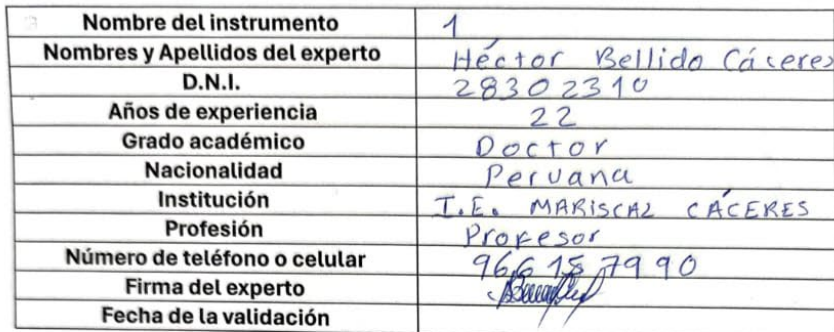 Nombre del instrumento 1
Nombres y Apellidos del experto Héctor Bellido Cáceres
D.N.I. 28302310
Años de experiencia 22
Grado académico Doctor
Nacionalidad Peruana
Institución I.E. MARISCAL CÁCERES
Profesión Profesor
Número de teléfono o celular 966187990
Firma del experto
Fecha de la validación